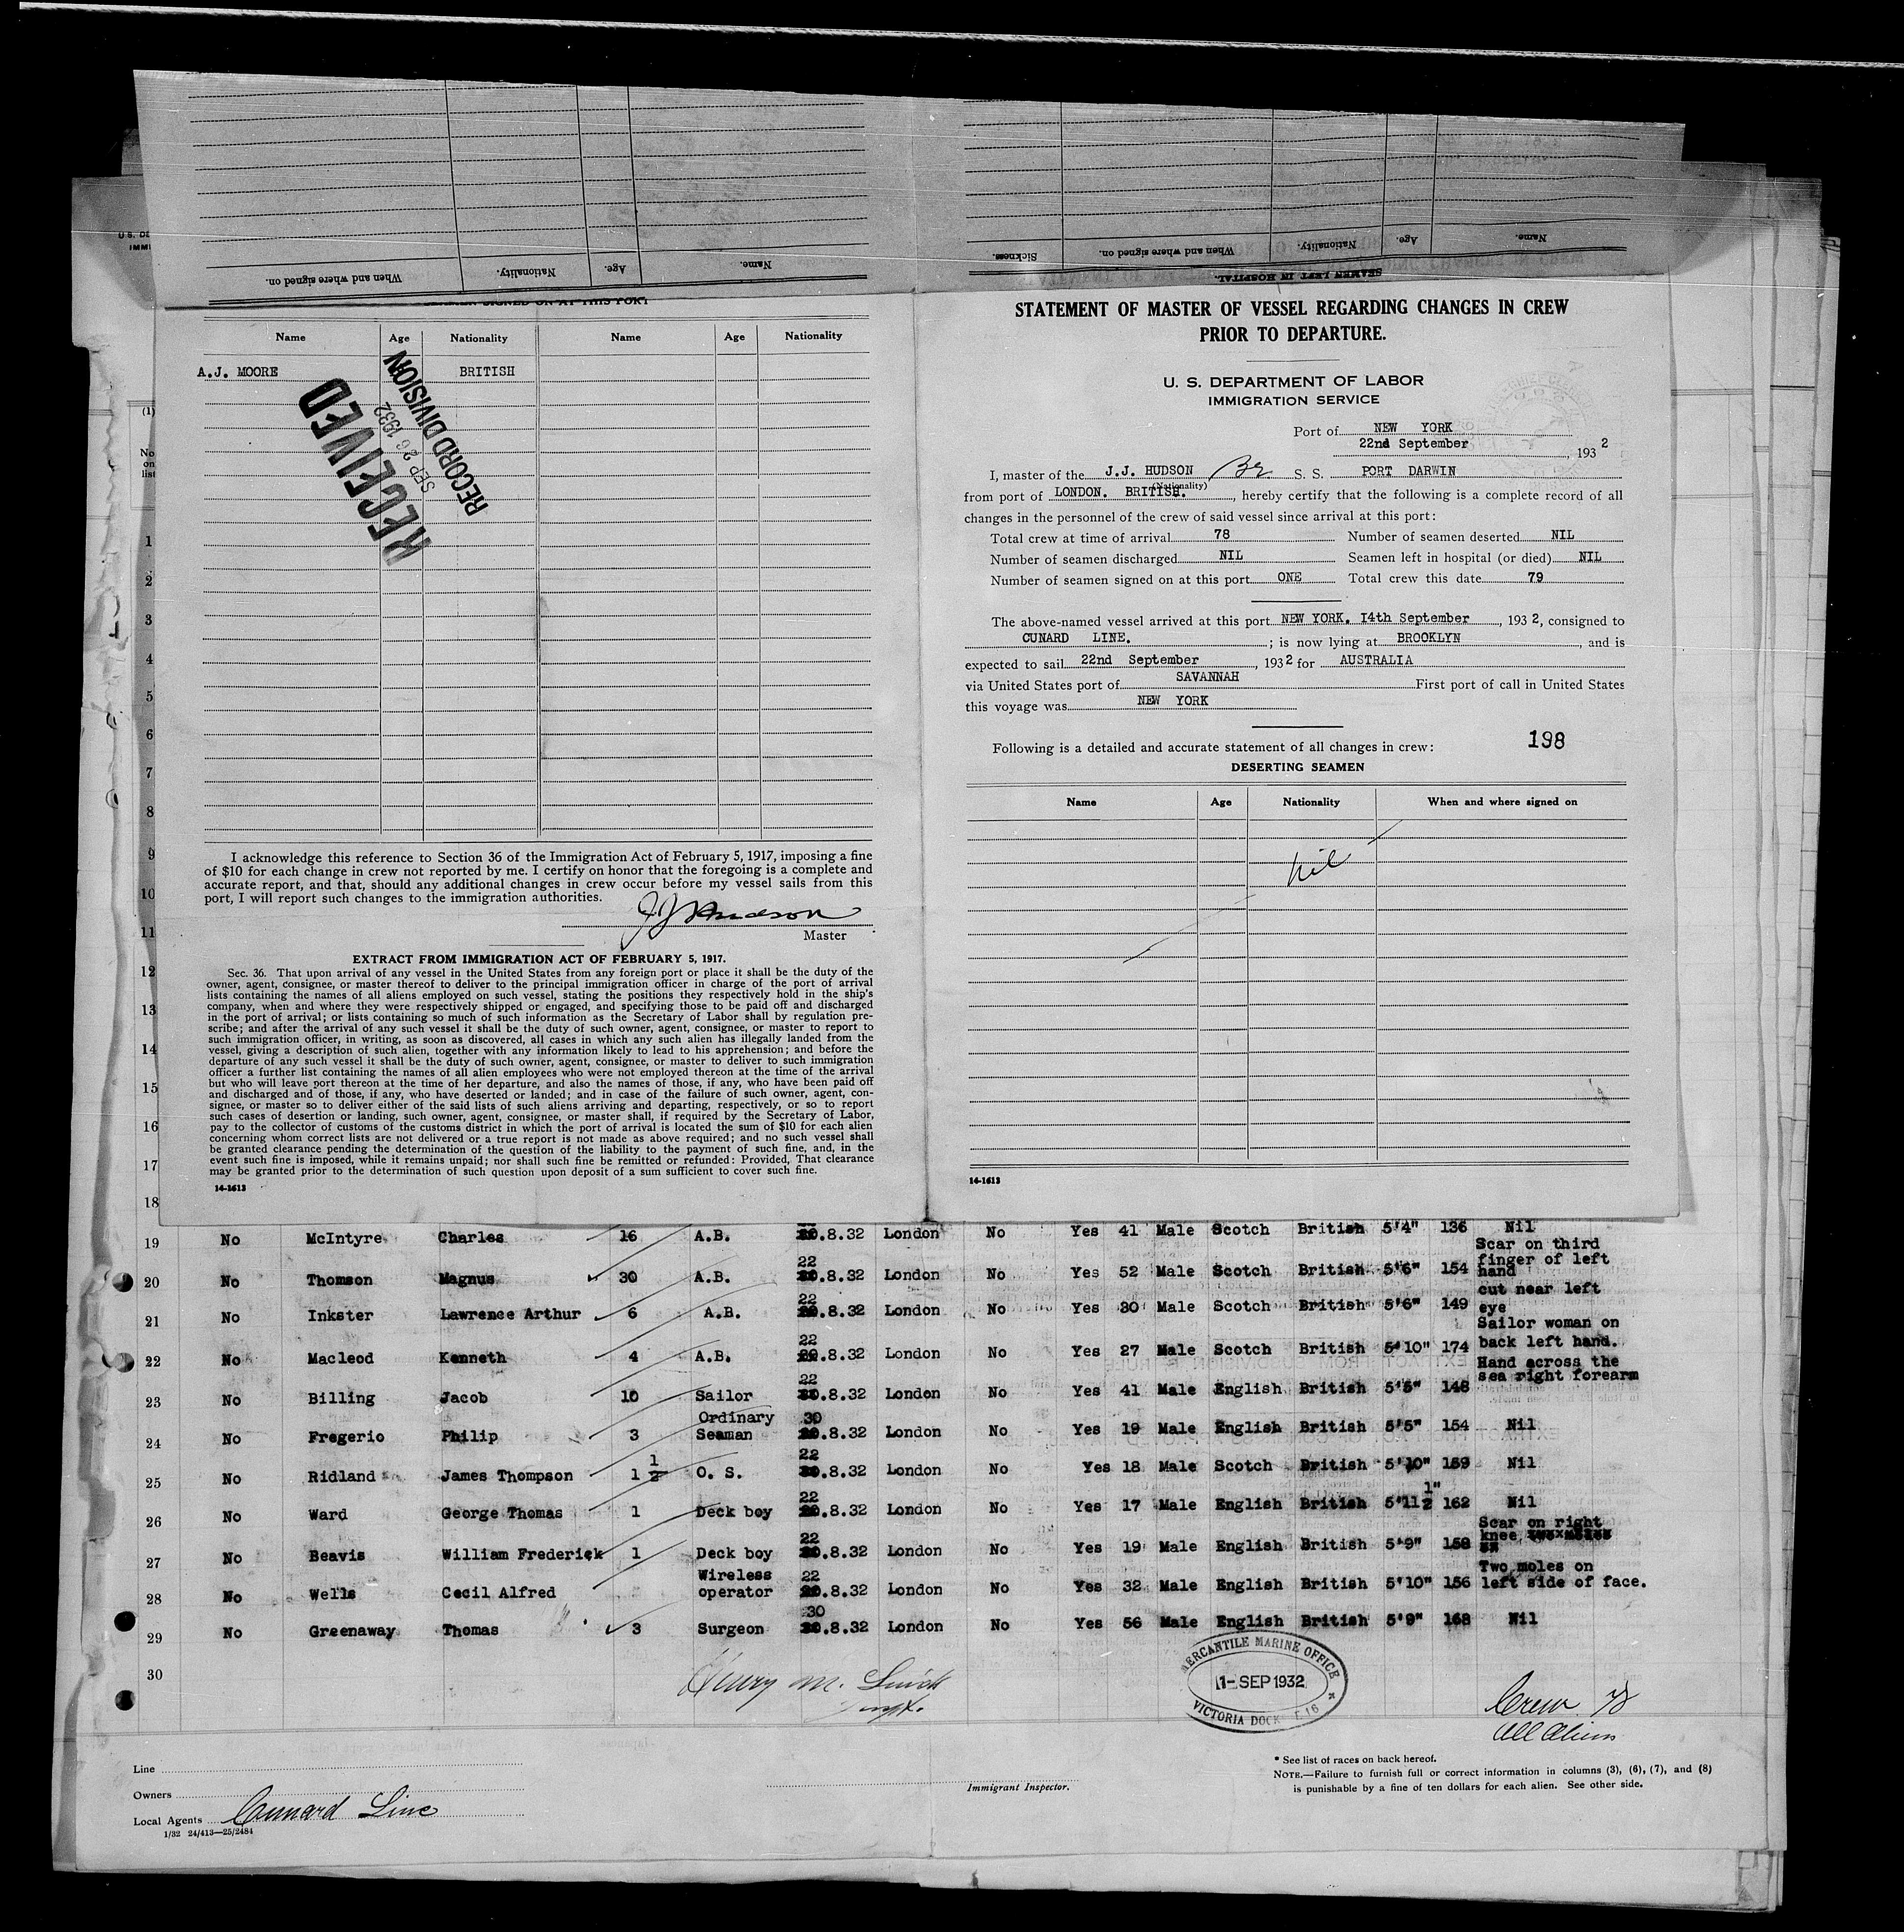 U.S. DE
IMMI
When and where signed on.
Nationality.
Age.
Name.
Sickness.
When and where signed on.
Nationality.
Age.
Name.
SEAMEN LEFT IN HOSPITAL.
SEAMEN SIGNED ON AT THIS PORT
Name Age Nationality Name Age Nationality
A.J. MOORE BRITISH
RECEIVED
SEP 26 1932
RECORD DIVISION
I acknowledge this reference to Section 36 of the Immigration Act of February 5, 1917, imposing a fine
of $10 for each change in crew not reported by me. I certify on honor that the foregoing is a complete and
accurate report, and that, should any additional changes in crew occur before my vessel sails from this
port, I will report such changes to the immigration authorities.
J J Hudson
Master
EXTRACT FROM IMMIGRATION ACT OF FEBRUARY 5, 1917.
Sec. 36. That upon arrival of any vessel in the United States from any foreign port or place it shall be the duty of the
owner, agent, consignee, or master thereof to deliver to the principal immigration officer in charge of the port of arrival
lists containing the names of all aliens employed on such vessel, stating the positions they respectively hold in the ship's
company, when and where they were respectively shipped or engaged, and specifying those to be paid off and discharged
in the port of arrival; or lists containing so much of such information as the Secretary of Labor shall by regulation pre-
scribe; and after the arrival of any such vessel it shall be the duty of such owner, agent, consignee, or master to report to
such immigration officer, in writing, as soon as discovered, all cases in which any such alien has illegally landed from the
vessel, giving a description of such alien, together with any information likely to lead to his apprehension; and before the
departure of any such vessel it shall be the duty of such owner, agent, consignee, or master to deliver to such immigration
officer a further list containing the names of all alien employees who were not employed thereon at the time of the arrival
but who will leave port thereon at the time of her departure, and also the names of those, if any, who have been paid off
and discharged and of those, if any, who have deserted or landed; and in case of the failure of such owner, agent, con-
signee, or master so to deliver either of the said lists of such aliens arriving and departing, respectively, or so to report
such cases of desertion or landing, such owner, agent, consignee, or master shall, if required by the Secretary of Labor,
pay to the collector of customs of the customs district in which the port of arrival is located the sum of $10 for each alien
concerning whom correct lists are not delivered or a true report is not made as above required; and no such vessel shall
be granted clearance pending the determination of the question of the liability to the payment of such fine, and, in the
event such fine is imposed, while it remains unpaid; nor shall such fine be remitted or refunded: Provided, That clearance
may be granted prior to the determination of such question upon deposit of a sum sufficient to cover such fine.
14-1613
STATEMENT OF MASTER OF VESSEL REGARDING CHANGES IN CREW
PRIOR TO DEPARTURE.
U. S. DEPARTMENT OF LABOR
IMMIGRATION SERVICE
Port of NEW YORK
22nd September, 1932
I, master of the J.J. HUDSON Br S. S. PORT DARWIN
(Nationality)
from port of LONDON. BRITISH., hereby certify that the following is a complete record of all
changes in the personnel of the crew of said vessel since arrival at this port:
Total crew at time of arrival 78 Number of seamen deserted NIL
Number of seamen discharged NIL Seamen left in hospital (or died) NIL
Number of seamen signed on at this port ONE Total crew this date 79
The above-named vessel arrived at this port NEW YORK. 14th September, 1932, consigned to
CUNARD LINE.; is now lying at BROOKLYN, and is
expected to sail 22nd September, 1932 for AUSTRALIA
via United States port of SAVANNAH First port of call in United States
this voyage was NEW YORK
Following is a detailed and accurate statement of all changes in crew: 198
DESERTING SEAMEN
Name Age Nationality When and where signed on
Nil
14-1613
(1)
No
on
list
1
2
3
4
5
6
7
8
9
10
11
12
13
14
15
16
17
18
19 No McIntyre Charles 16 A.B. .8.32 London No Yes 41 Male Scotch British 5'4" 136 Nil
20 No Thomson Magnus 30 A.B. 22.8.32 London No Yes 52 Male Scotch British 5'6" 154 Scar on third
finger of left
hand
21 No Inkster Lawrence Arthur 6 A.B. 22.8.32 London No Yes 30 Male Scotch British 5'6" 149 cut near left
eye
22 No Macleod Kenneth 4 A.B. 22.8.32 London No Yes 27 Male Scotch British 5'10" 174 Sailor woman on
back left hand.
Hand across the
sea right forearm
23 No Billing Jacob 10 Sailor 22.8.32 London No Yes 41 Male English British 5'5" 148
24 No Fregerio Philip 3 Ordinary Seaman 30.8.32 London No Yes 19 Male English British 5'5" 154 Nil
25 No Ridland James Thompson 1 1/2 O. S. 22.8.32 London No Yes 18 Male Scotch British 5'10" 159 Nil
26 No Ward George Thomas 1 Deck boy 22.8.32 London No Yes 17 Male English British 5'11 1/2" 162 Nil
27 No Beavis William Frederick 1 Deck boy 22.8.32 London No Yes 19 Male English British 5'9" 158 Scar on right
knee
28 No Wells Cecil Alfred Wireless operator 22.8.32 London No Yes 32 Male English British 5'10" 156 Two moles on
left side of face.
29 No Greenaway Thomas 3 Surgeon 30.8.32 London No Yes 56 Male English British 5'9" 168 Nil
30
MERCANTILE MARINE OFFICE
1-SEP 1932
VICTORIA DOCK E 16
Crew 78
All Aliens
Line
Owners
Local Agents Cunard Line
1/32 24/413—25/2484
Immigrant Inspector.
* See list of races on back hereof.
NOTE.—Failure to furnish full or correct information in columns (3), (6), (7), and (8)
is punishable by a fine of ten dollars for each alien. See other side.